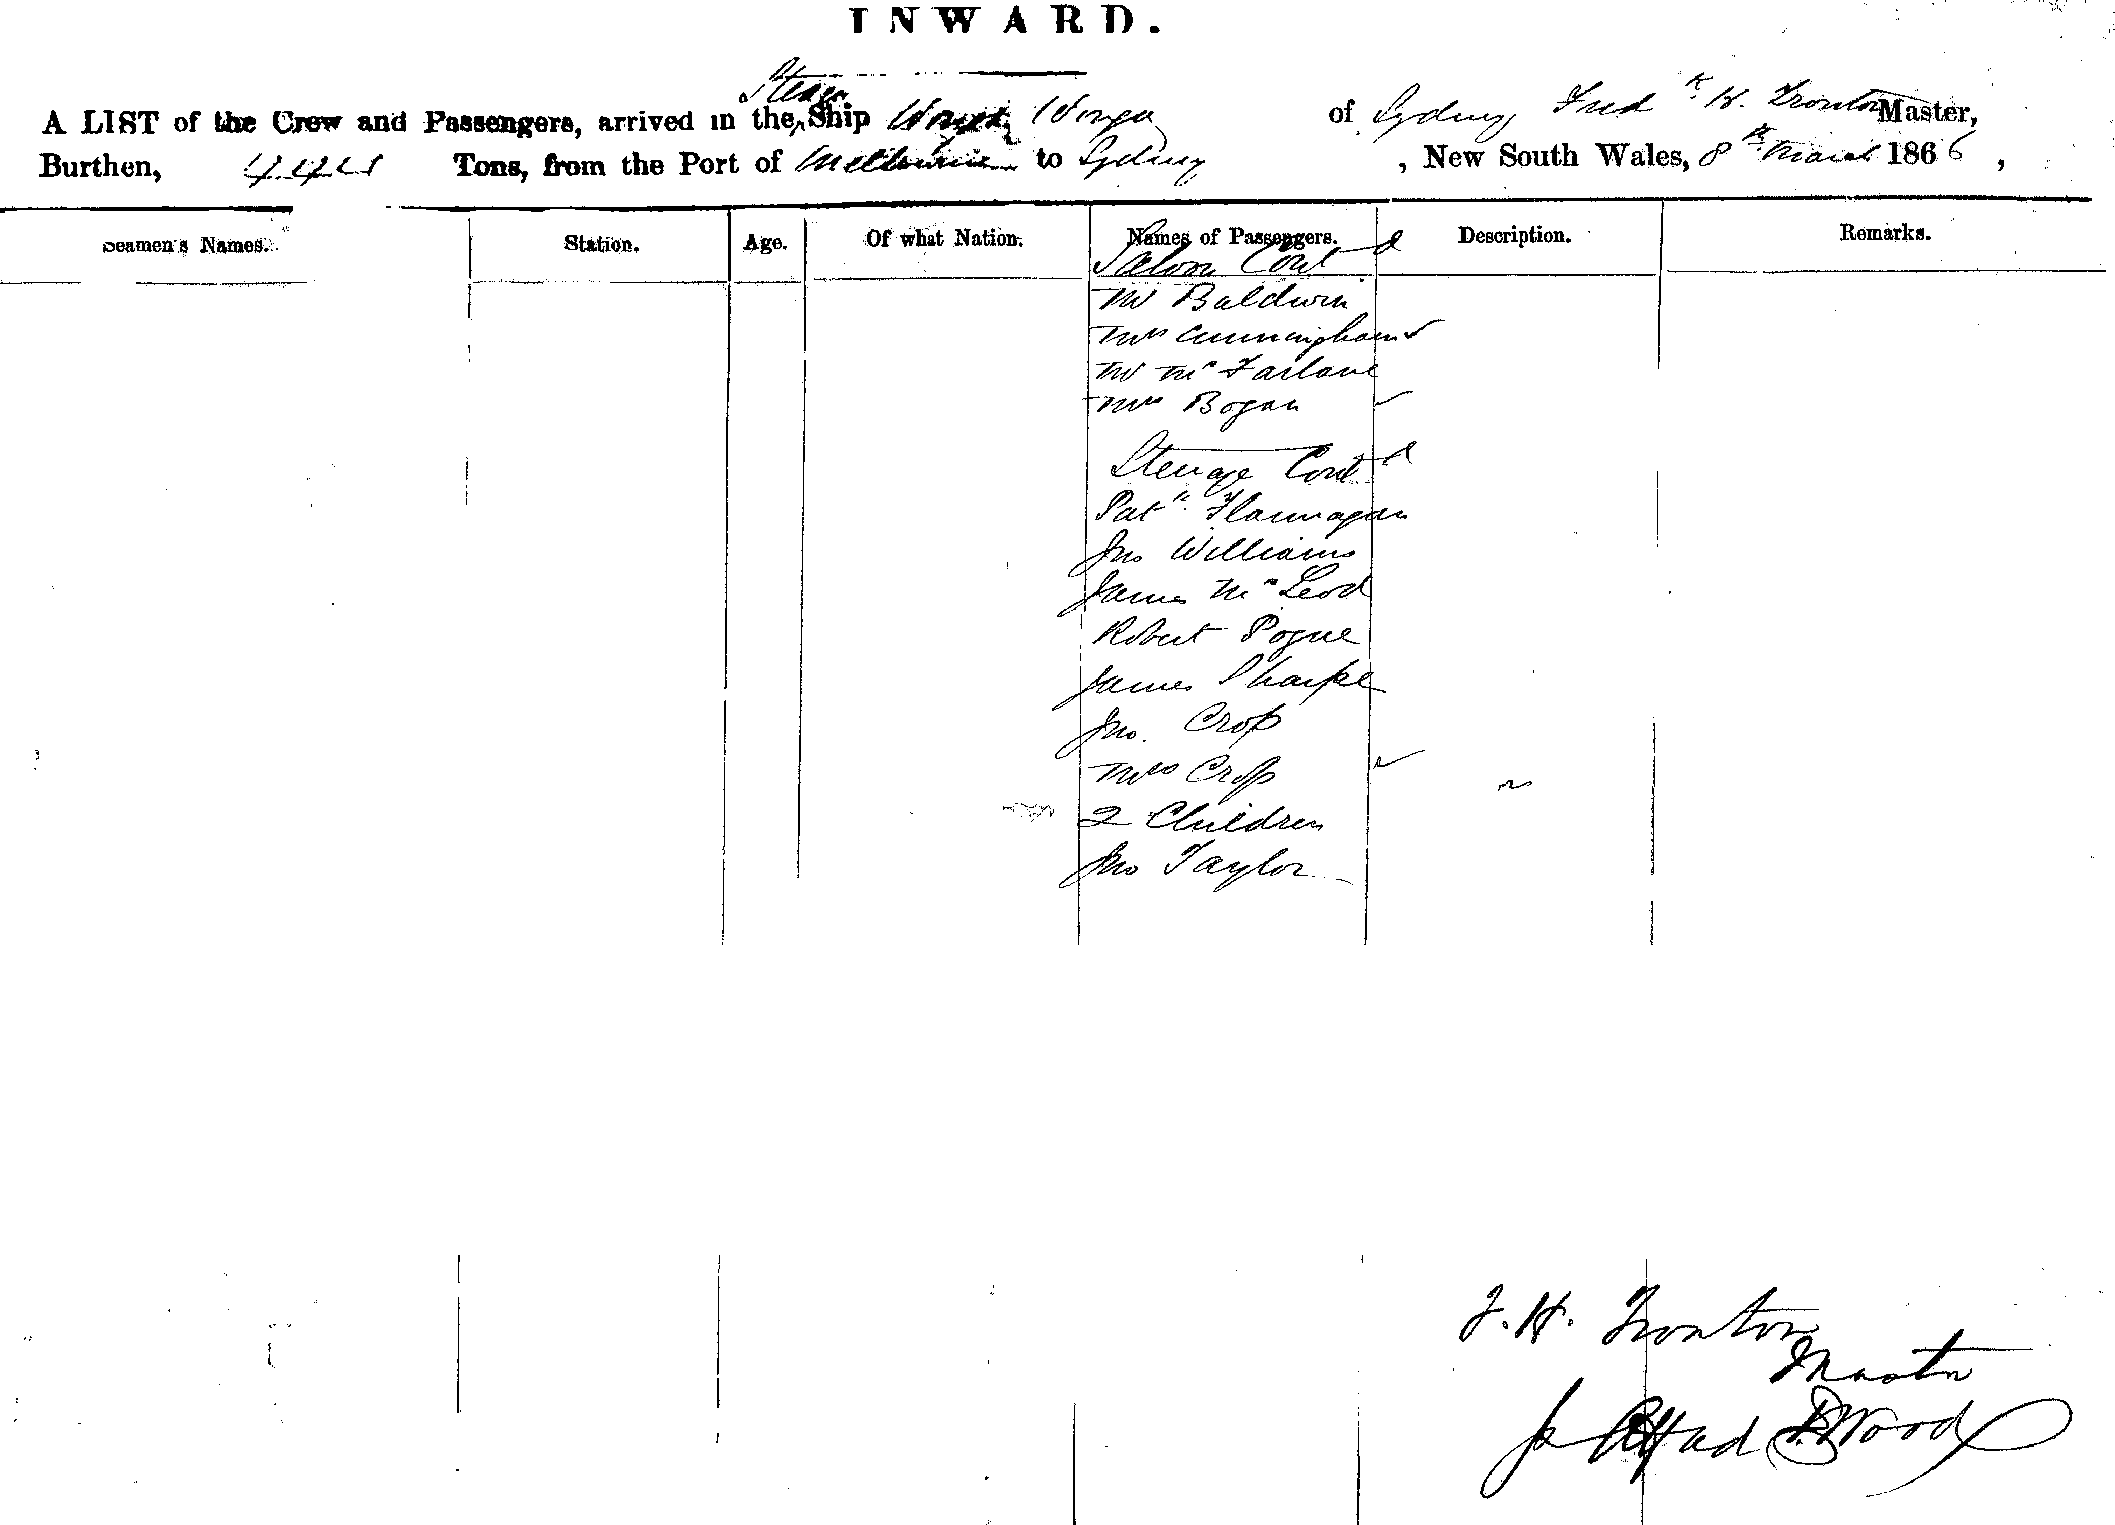 INWARD.
Steam
A LIST of the Crew and Passengers, arrived in the ^ Ship Wonga Wonga of Sydney, Fredk H. Tronton Master,
Burthen, Tons, from the Port of Melbourne to Sydney, New South Wales, 8th March 1866,
Seamen's Names. Station. Age. Of what Nation. Names of Passengers. Description. Remarks.
Saloon Contd
Mr Baldwin
Mrs Cunningham
Mr McFarlane
Mrs Bogan
Steerage Contd
Patk Flannagan
Jno Williams
James McLeod
Robert Pogue
James Sharpe
Jno. Crop
Mrs Crop
2 Children
Jno Taylor
F. H. Tronton
Master
Alfred Wood